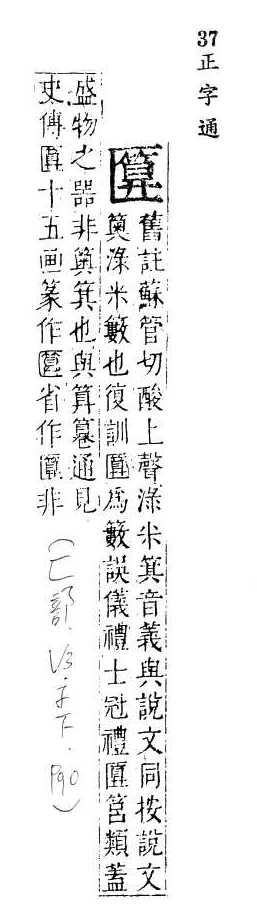 37 正字通
匴
舊註蘇管切酸上聲漉米箕音義與說文同按說文
䉛漉米籔也復訓匴爲籔誤儀禮士冠禮匴筥類蓋
盛物之器非䉛箕也與算篹通見
史傳匴十五画篆作匴省作匴非
(匚部．V3．子下．P90)